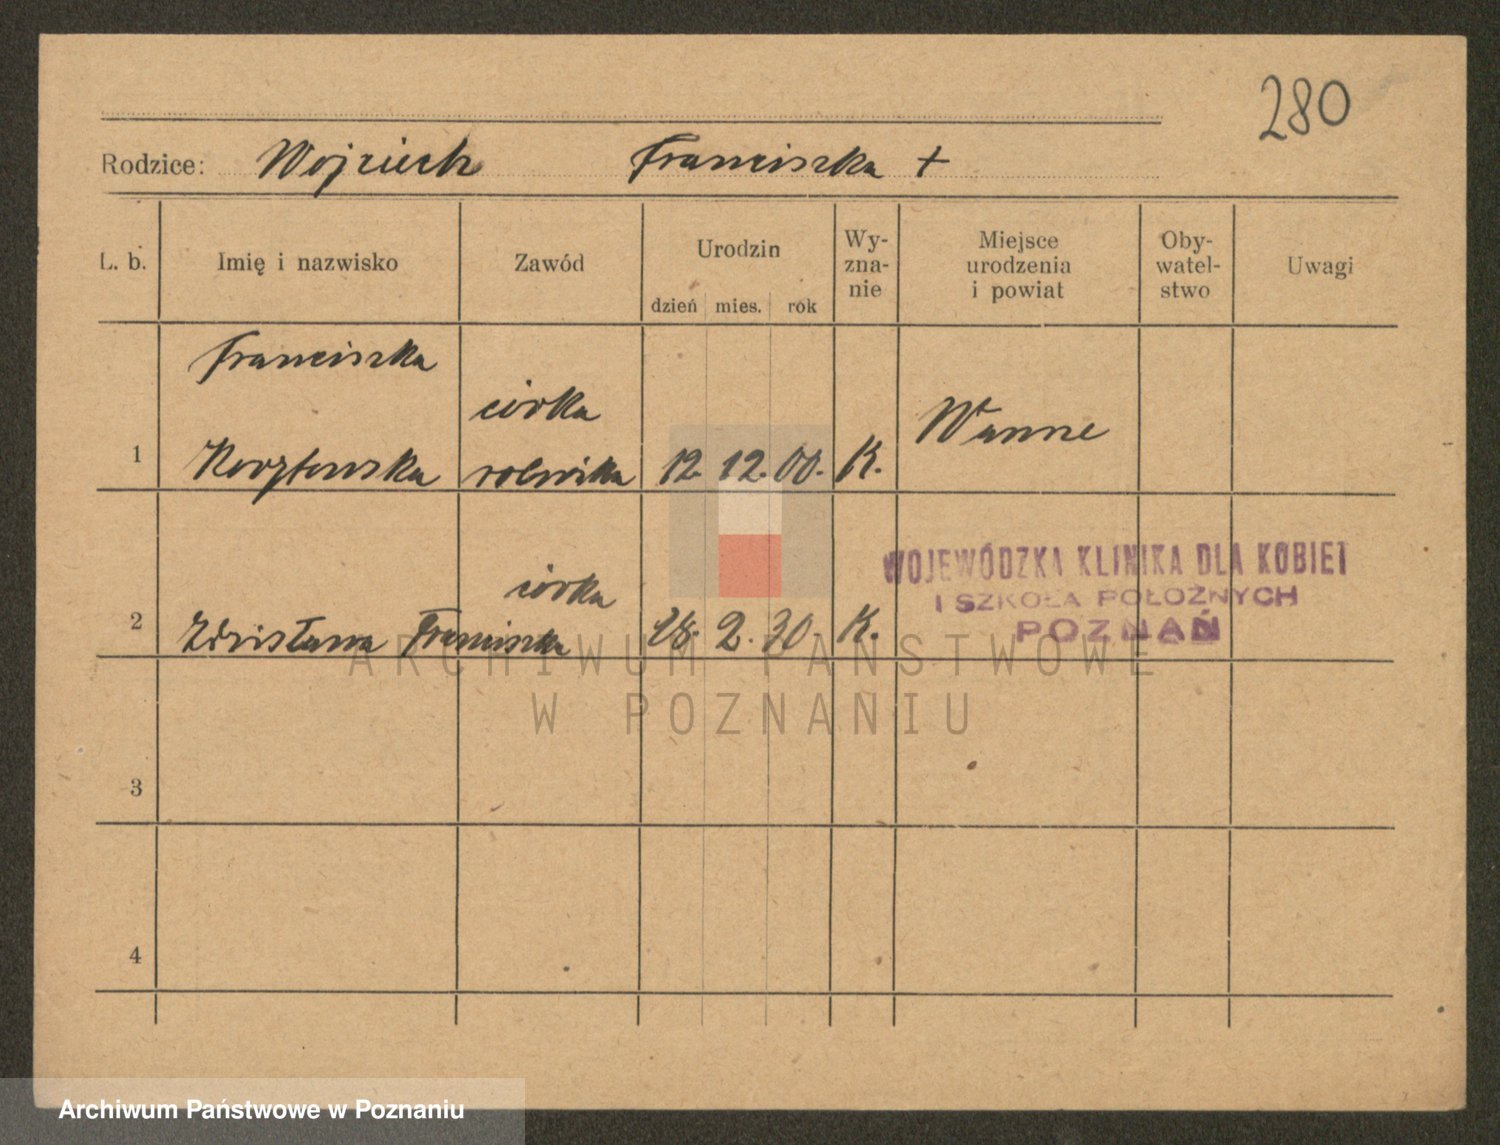 280
Rodzice: Wojciech Franciszka +
L. b. Imię i nazwisko Zawód Urodzin Wy-zna-nie Miejsce urodzenia i powiat Oby-watel-stwo Uwagi
dzień mies. rok
Franciszka córka
1 rolnika 12. 12. 00. K. Wanne
WOJEWÓDZKA KLINIKA DLA KOBIET
I SZKOŁA POŁOŻNYCH
POZNAŃ
córka
2 Zdzisława Franciszka 28. 2. 30. K.
ARCHIWUM PAŃSTWOWE
W POZNANIU
3
4
Archiwum Państwowe w Poznaniu